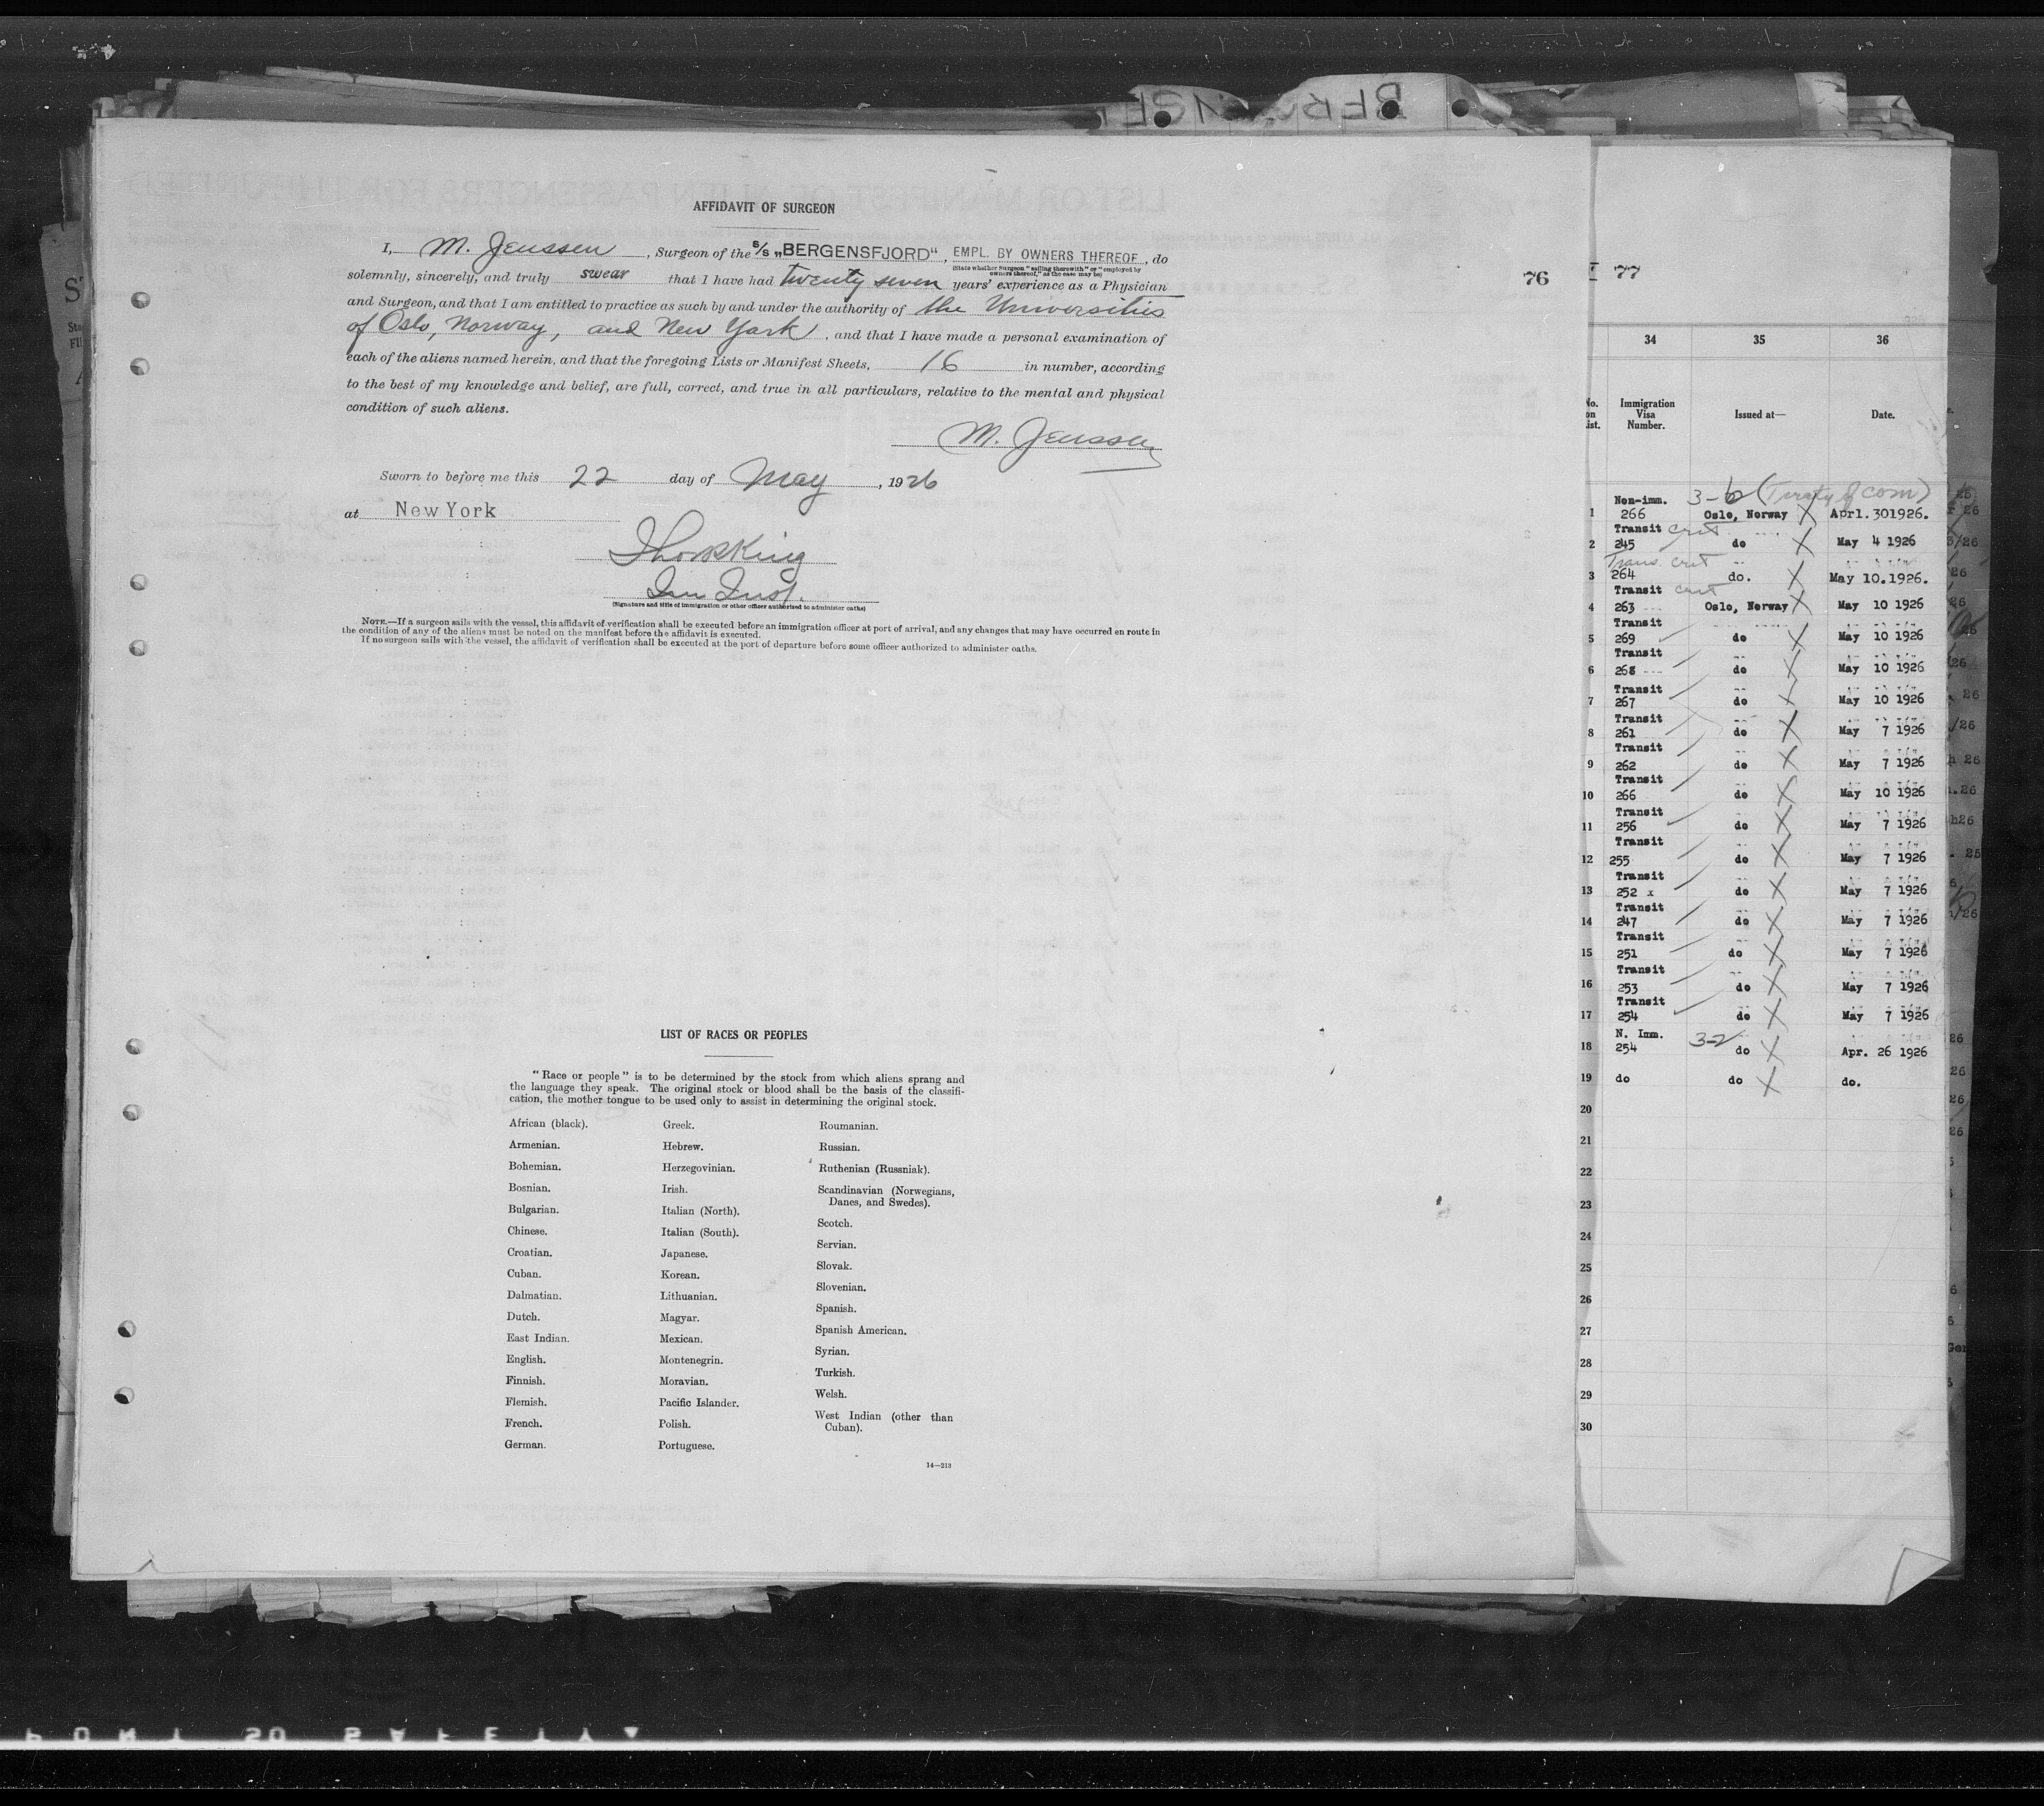 AFFIDAVIT OF SURGEON
I, M. Jenssen, Surgeon of the S/S „BERGENSFJORD“, EMPL. BY OWNERS THEREOF, do
(State whether Surgeon "sailing therewith" or "employed by owners thereof," as the case may be)
solemnly, sincerely, and truly swear that I have had twenty seven years' experience as a Physician
and Surgeon, and that I am entitled to practice as such by and under the authority of the Universities
of Oslo, Norway, and New York, and that I have made a personal examination of
each of the aliens named herein, and that the foregoing Lists or Manifest Sheets, 16 in number, according
to the best of my knowledge and belief, are full, correct, and true in all particulars, relative to the mental and physical
condition of such aliens.
M. Jenssen
Sworn to before me this 22 day of May, 1926
at New York
(Signature and title of immigration or other officer authorized to administer oaths)
NOTE.—If a surgeon sails with the vessel, this affidavit of verification shall be executed before an immigration officer at port of arrival, and any changes that may have occurred en route in
the condition of any of the aliens must be noted on the manifest before the affidavit is executed.
If no surgeon sails with the vessel, the affidavit of verification shall be executed at the port of departure before some officer authorized to administer oaths.
LIST OF RACES OR PEOPLES
"Race or people" is to be determined by the stock from which aliens sprang and
the language they speak. The original stock or blood shall be the basis of the classifi-
cation, the mother tongue to be used only to assist in determining the original stock.
African (black).
Armenian.
Bohemian.
Bosnian.
Bulgarian.
Chinese.
Croatian.
Cuban.
Dalmatian.
Dutch.
East Indian.
English.
Finnish.
Flemish.
French.
German.
Greek.
Hebrew.
Herzegovinian.
Irish.
Italian (North).
Italian (South).
Japanese.
Korean.
Lithuanian.
Magyar.
Mexican.
Montenegrin.
Moravian.
Pacific Islander.
Polish.
Portuguese.
Roumanian.
Russian.
Ruthenian (Russniak).
Scandinavian (Norwegians,
Danes, and Swedes).
Scotch.
Servian.
Slovak.
Slovenian.
Spanish.
Spanish American.
Syrian.
Turkish.
Welsh.
West Indian (other than
Cuban).
14—213
76
77
34 35 36
Immigration Visa Number. Issued at— Date.
Non-imm. 3-b (Treaty of com)
1 266 Oslo, Norway X Aprl.301926.
Transit
2 245 do X May 4 1926
Trans.
3 264 do. X May 10.1926.
Transit
4 263 Oslo, Norway X May 10 1926
Transit
5 269 do X May 10 1926
Transit
6 268 do X May 10 1926
Transit
7 267 do X May 10 1926
Transit
8 261 do X May 7 1926
Transit
9 262 do X May 7 1926
Transit
10 266 do X May 10 1926
Transit
11 256 do X May 7 1926
Transit
12 255 do X May 7 1926
Transit
13 252 x do X May 7 1926
Transit
14 247 do X May 7 1926
Transit
15 251 do X May 7 1926
Transit
16 253 do X May 7 1926
Transit
17 254 do X May 7 1926
N. Imm. 3-2
18 254 do X Apr. 26 1926
19 do do X do.
20
21
22
23
24
25
26
27
28
29
30